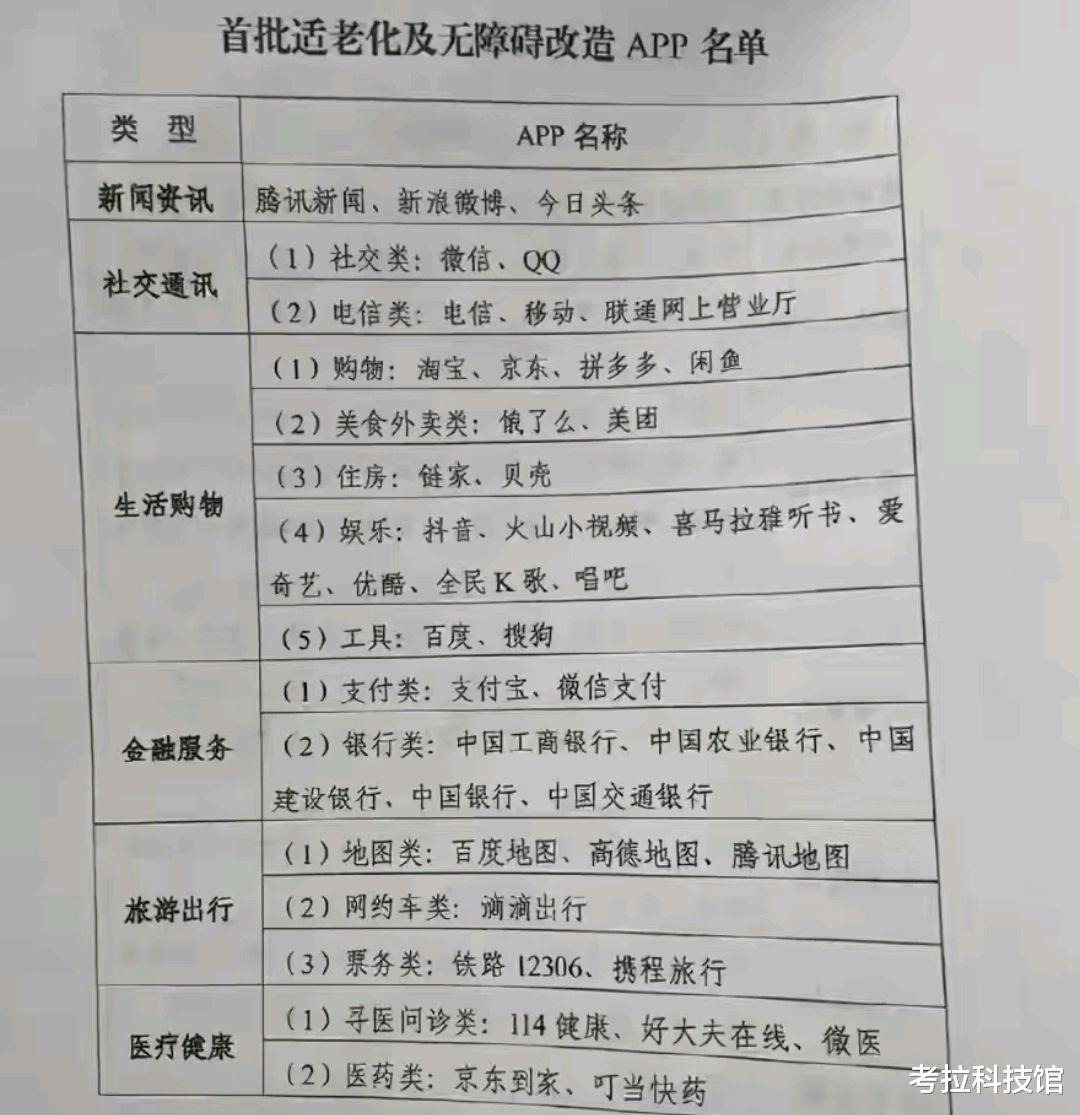 首批适老化及无障碍改造 APP 名单
类 型
APP 名称
新闻资讯
腾讯新闻、新浪微博、今日头条
社交通讯
（1）社交类：微信、QQ
（2）电信类：电信、移动、联通网上营业厅
生活购物
（1）购物：淘宝、京东、拼多多、闲鱼
（2）美食外卖类：饿了么、美团
（3）住房：链家、贝壳
（4）娱乐：抖音、火山小视频、喜马拉雅听书、爱
奇艺、优酷、全民 K 歌、唱吧
（5）工具：百度、搜狗
金融服务
（1）支付类：支付宝、微信支付
（2）银行类：中国工商银行、中国农业银行、中国
建设银行、中国银行、中国交通银行
旅游出行
（1）地图类：百度地图、高德地图、腾讯地图
（2）网约车类：滴滴出行
（3）票务类：铁路 12306、携程旅行
医疗健康
（1）寻医问诊类：114 健康、好大夫在线、微医
（2）医药类：京东到家、叮当快药
考拉科技馆